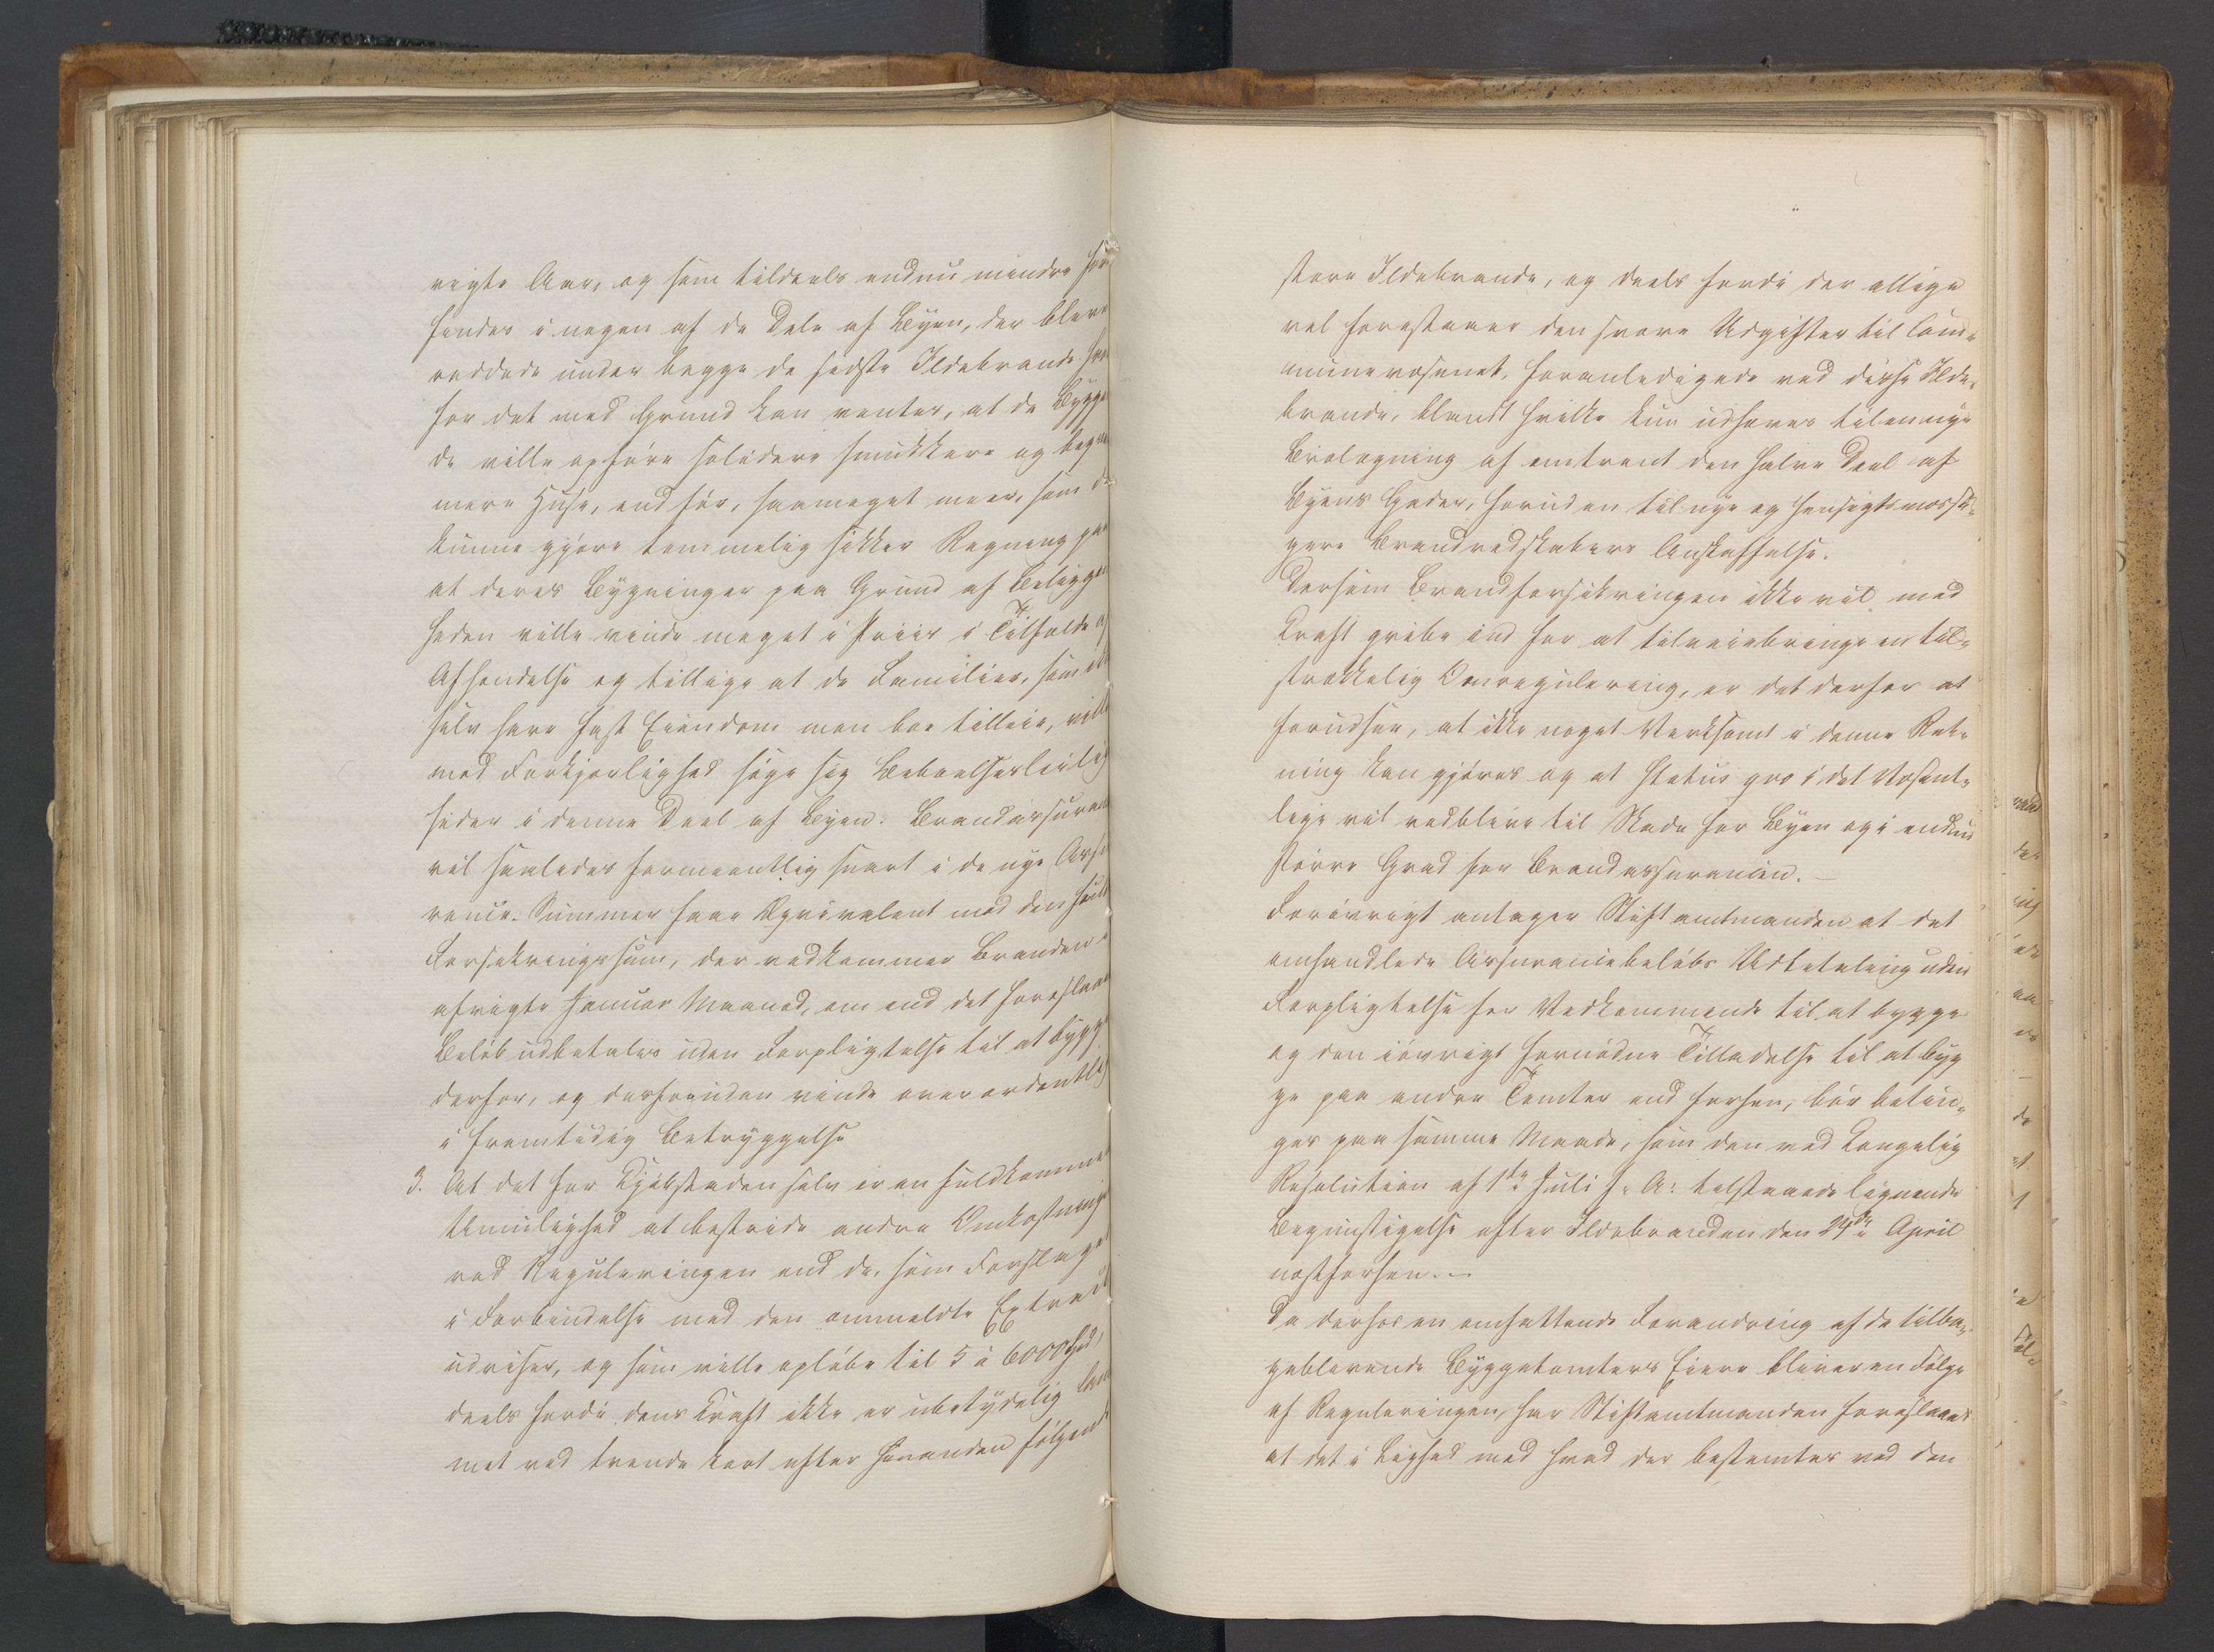 vigte Aar, og som tildeels endnu mindre
findes i nogen af de Dele af Byen, der bleve
reddede under begge de sidste Ildebrande
for det med Grund kan ventes, at de Bygge
de ville opføre solidere smukkere og beqve
mere Huse, end før, saameget meer, som de
kunne gjøre temmelig sikker Regning paa
at deres Bygninger paa Grund af Beliggen
heden ville vinde meget i Priis i Tilfælde af
Afhændelse og tillige at de Familier, som ei
selv have fast Eiendom men boe tilleie, ville
med Forkjærlighed søge sig Beboelsesleilig
heder i denne Deel af Byen. Brandassuran
vil saaledes formeentlig snart i de nye Assu
rance-Summer faae Æqvivalent med den
Forsikringssum, der vedkommer Branden i
afvigte Januar Maaned, om end det foreslaae
Beløb udbetales uden Forpligtelse til at bygge
derfor, og desforuden vinde overordentlig
i fremtidig Betryggelse
3. At det for Kjøbstaden selv er en fuldkommen
Umulighed at bestride andre Omkostninger
ved Reguleringen end de, som Forslaget
i Forbindelse med den anmeldte Extract
udviser, og som ville opløbe til 5 à 6000 Spd,
deels fordi dens Kraft ikke er ubetydelig lam
met ved trende kort efter hinanden følgende
store Ildebrande, og deels fordi der allige
vel forestaaer den svære Udgifter til Com-
munevæsenet, foranledigede ved disse Ilde-
brande, blandt hvilke kun udhæves til en nye
Brolægning af omtrent den halve Deel af
Byens Gader, foruden til nye og hensigtsmæssi-
gere Brandredskabers Anskaffelse.
Dersom Brandforsikringen ikke vil med
Kraft gribe ind for at tilveiebringe en til-
strækkelig Omregulering, er det derfor at
forudsee, at ikke noget Virksomt i denne Ret-
ning kan gjøres og at status qvo i det Væsent-
lige vil vedblive til Skade for Byen og i endnu
større Grad for Brandassurancen. -
Forøvrigt antager Stiftamtmanden at det
omhandlede Assurancebeløbs Udbetaling uden
Forpligtelse for Vedkommende til at bygge
og den iøvrigt fornødne Tilladelse til at byg
ge paa andre Tomter end forhen, bør betin-
ges paa samme Maade, som den ved Kongelig
Resolution af 1ste Juli f. A. tilstaaede lignende
Begunstigelse efter Ildebranden den 24de April
næstforhen. -
Da derhos en omfattende Forandring af de tilba-
geblevende Byggetomters Eiere bliver en Følge
af Reguleringen, har Stiftamtmanden foreslaaet
at det i Lighed med hvad der bestemtes ved den